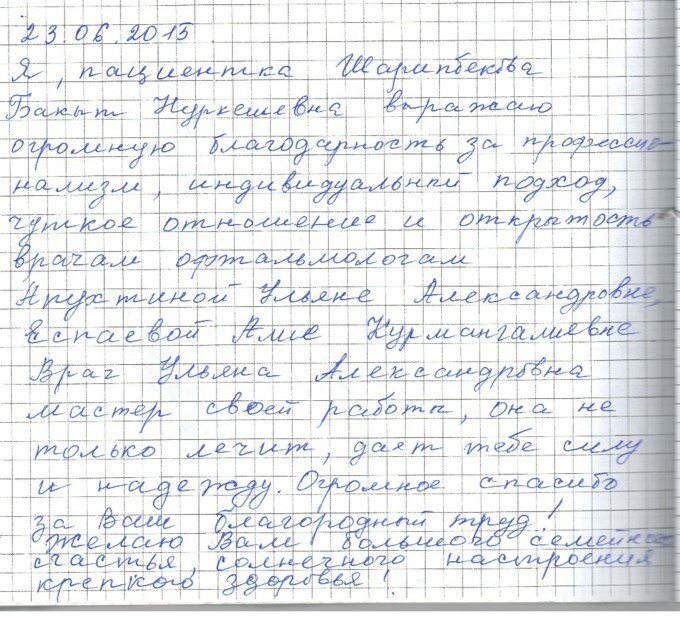 23.06.2015
Я, пациентка Шарипбекова
Бакыт Нуркешевна выражаю
огромную благодарность за профессио-
нализм, индивидуальный подход,
чуткое отношение и открытость
врачам офтальмологам
Ульяне Александровне,
Еспаевой Алие Нурмангалиевне
Врач Ульяна Александровна
мастер своей работы, она не
только лечит, дает тебе силу
и надежду. Огромное спасибо
за Ваш благородный труд!
Желаю Вам большого семейного
счастья, солнечного настроения
крепкого здоровья!